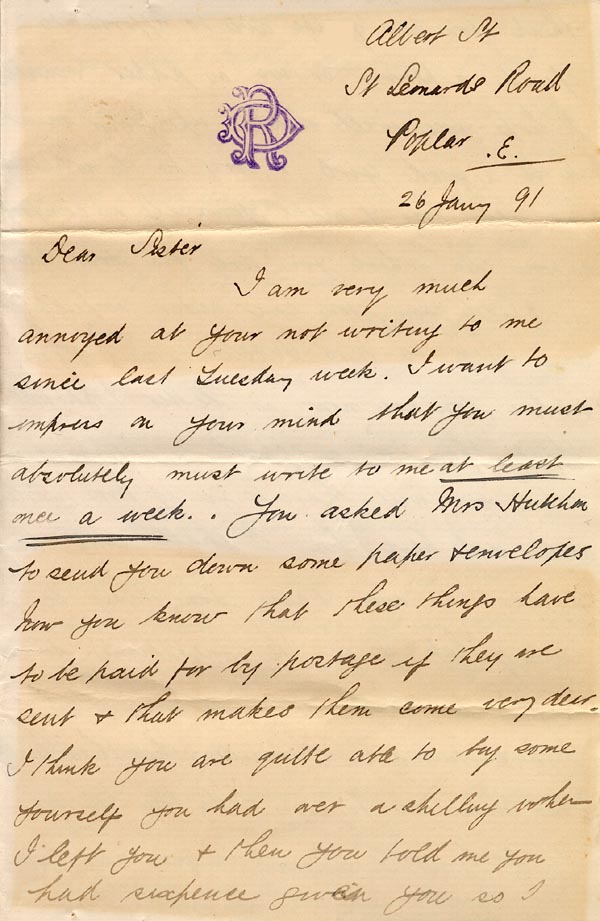 Albert St
St Leonards Road
Poplar .E.
26 Jany 91
Dear Sister
I am very much
annoyed at your not writing to me
since last Tuesday week. I want to
impress on your mind that you must
absolutely must write to me at least
once a week.. You asked Mrs
to send you down some paper & envelopes
Now you know that these things have
to be paid for by postage if they are
sent & that makes them come very dear.
I think you are quite able to buy some
yourself you had over a shilling when
I left you & then you told me you
had sixpence given you so I